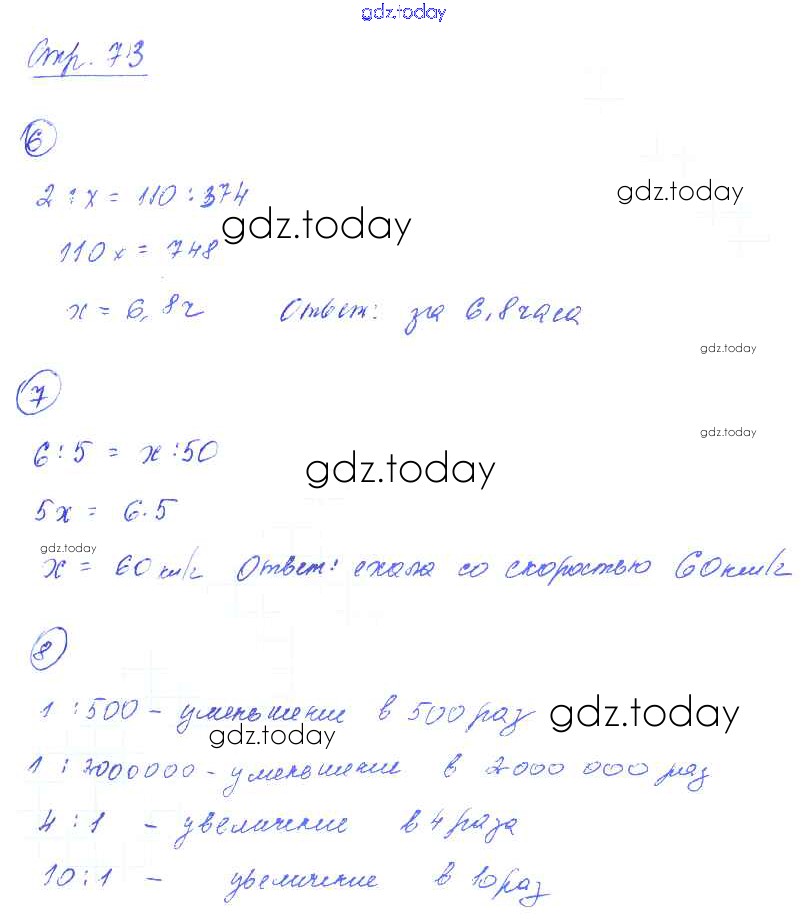 gdz.today
Стр. 73
6
gdz.today
2 : x = 110 : 374
gdz.today
110x = 748
x = 6,8ч Ответ: за 6,8 часа
gdz.today
7
gdz.today
6 : 5 = x : 50
gdz.today
5x = 6·5
gdz.today
x = 60 км/ч Ответ: ехала со скоростью 60 км/ч
8
1 : 500 - уменьшение в 500 раз
gdz.today
gdz.today
1 : 2000000 - уменьшение в 2000 000 раз
4 : 1 - увеличение в 4 раза
10 : 1 - увеличение в 10 раз